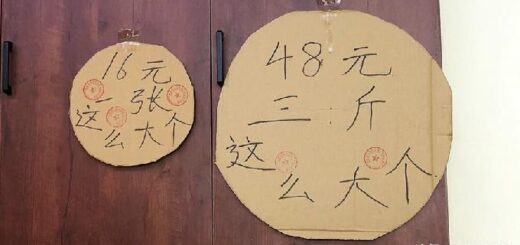 16元
一张
这么大个
48元
三斤
这么大个